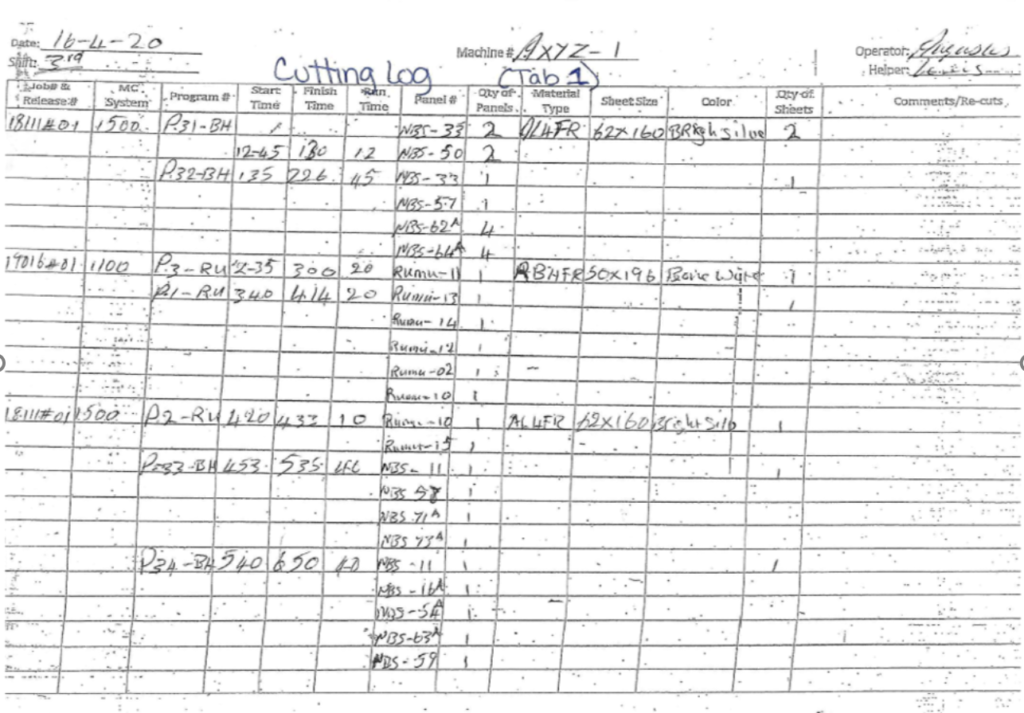 Date: 16-4-20 Machine # AXYZ-1 Operator:
Shift: 3rd Cutting Log (Tab 1) Helper:
Job# & Release# MC System Program # Start Time Finish Time Run Time Panel # Qty of Panels Material Type Sheet Size Color Qty of Sheets Comments/Re-cuts
18111#01 1500 P.31-BH NBS-33 2 AL4FR 62x160 2
12-45 130 12 NBS-50 2
P.32-BH 135 226 45 NBS-33 1 1
NBS-57 1
NBS-62A 4
NBS-64A 4
19016#01 1100 P.3-RU 2-35 300 20 Rumu-11 1 50x196 1
P.1-RU 340 414 20 Rumu-13 1 1
Rumu-14 1
Rumu-12 1
Rumu-02 1
Rumu-10 1
18111#01 1500 P.2-RU 420 433 10 Rumu-10 1 AL4FR 62x160 1
Rumu-15 1
P-33-BH 453 535 NBS-11 1 1
NBS 1
NBS 71A 1
NBS 73A 1
P34-BH 540 650 40 NBS-11 1 1
NBS-16A 1
NBS-54A 1
NBS-63A 1
NBS-59 1